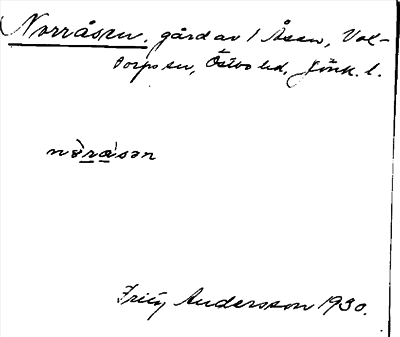 (Norråsen. gård av 1 Åsen, Vol-
torps sn, Östbo hd, Jönk. l.
nò̀råsən
Fritz Andersson 1930.